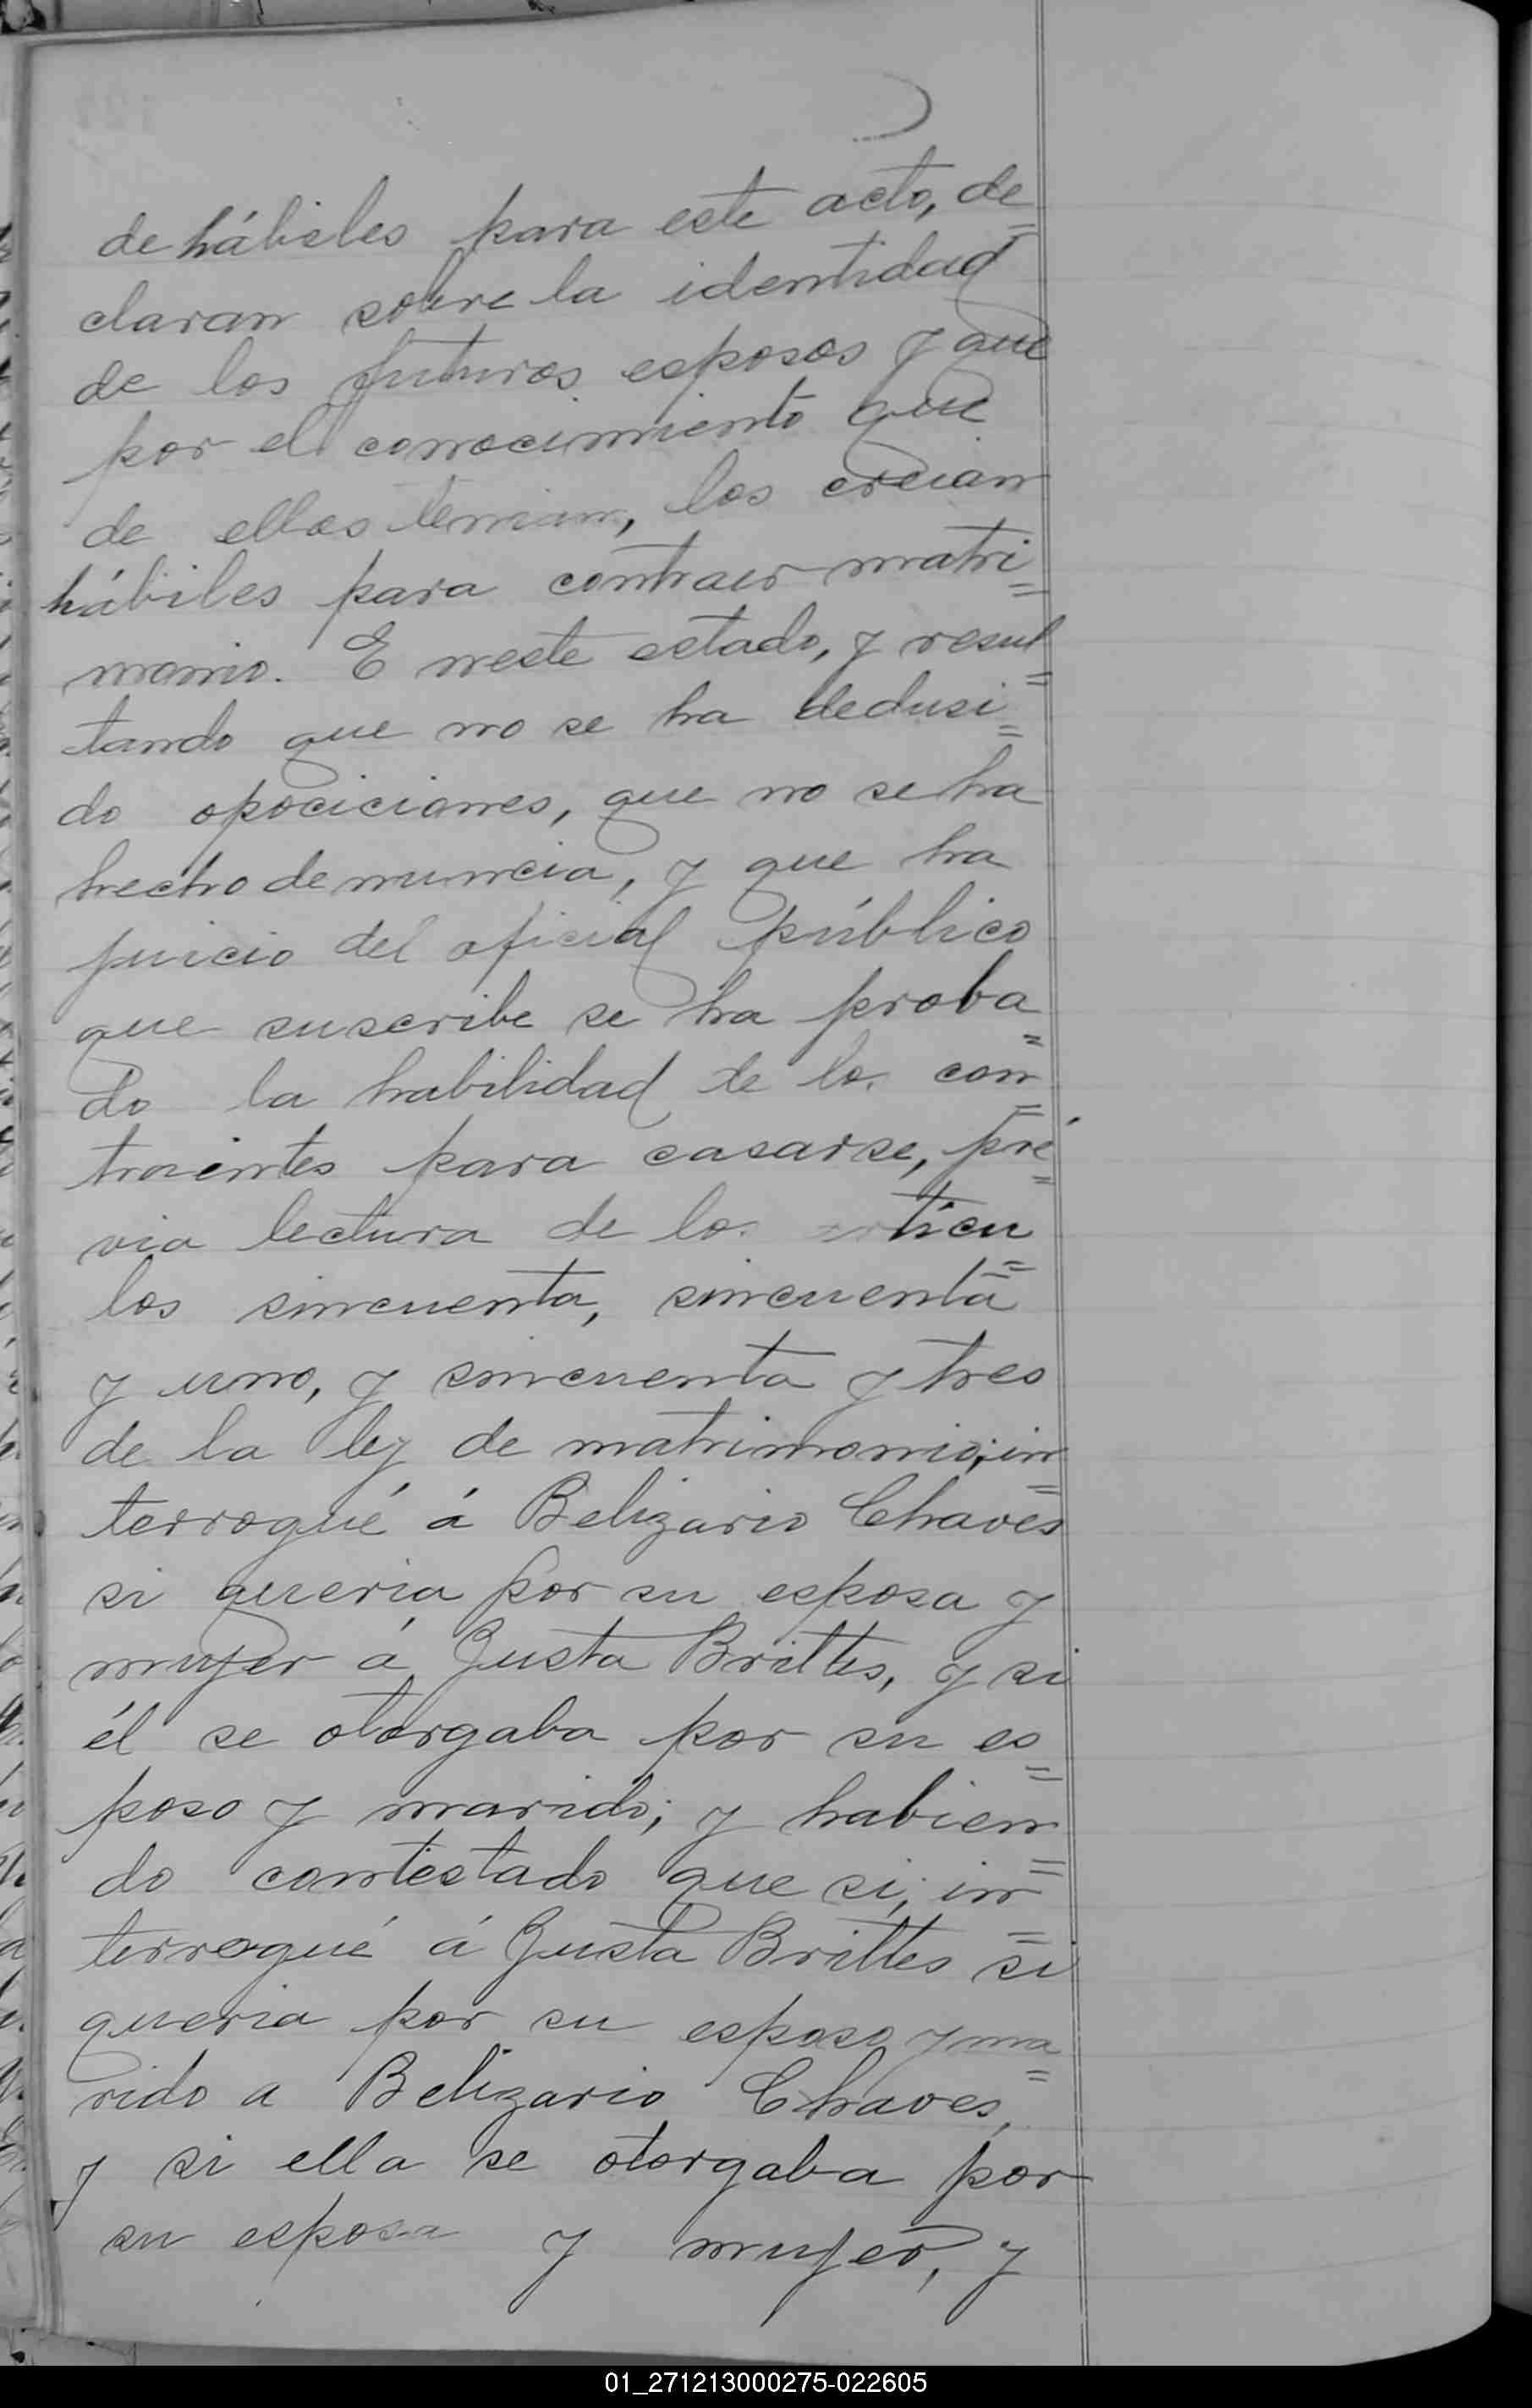 de hábiles para este acto, de=
claran sobre la identidad
de los futuros esposos y que
por el conocimiento que
de ellos tenian, los creian
hábiles para contraer matri=
monio. E neste estado, y resul=
tando que no se ha dedusi=
do opociciones, que no se ha
hecho denuncia, y que ha
juicio del oficial público
que suscribe se ha proba=
do la habilidad de los con=
traientes para casarse, pré=
via lectura de los artícu=
los sincuenta, sincuenta
y uno, y sincuenta y tres
de la ley de matrimonio; in=
terrogué á Belizario Chaves
si queria por su esposa y
mujer á Justa Brittes, y si
él se otorgaba por su es=
poso y marido; y habien=
do contestado que si, in=
terrogué á Justa Brittes si
queria por su esposo y ma=
rido a Belizario Chaves,
y si ella se otorgaba por
su esposa y mujer, y
01_271213000275-022605